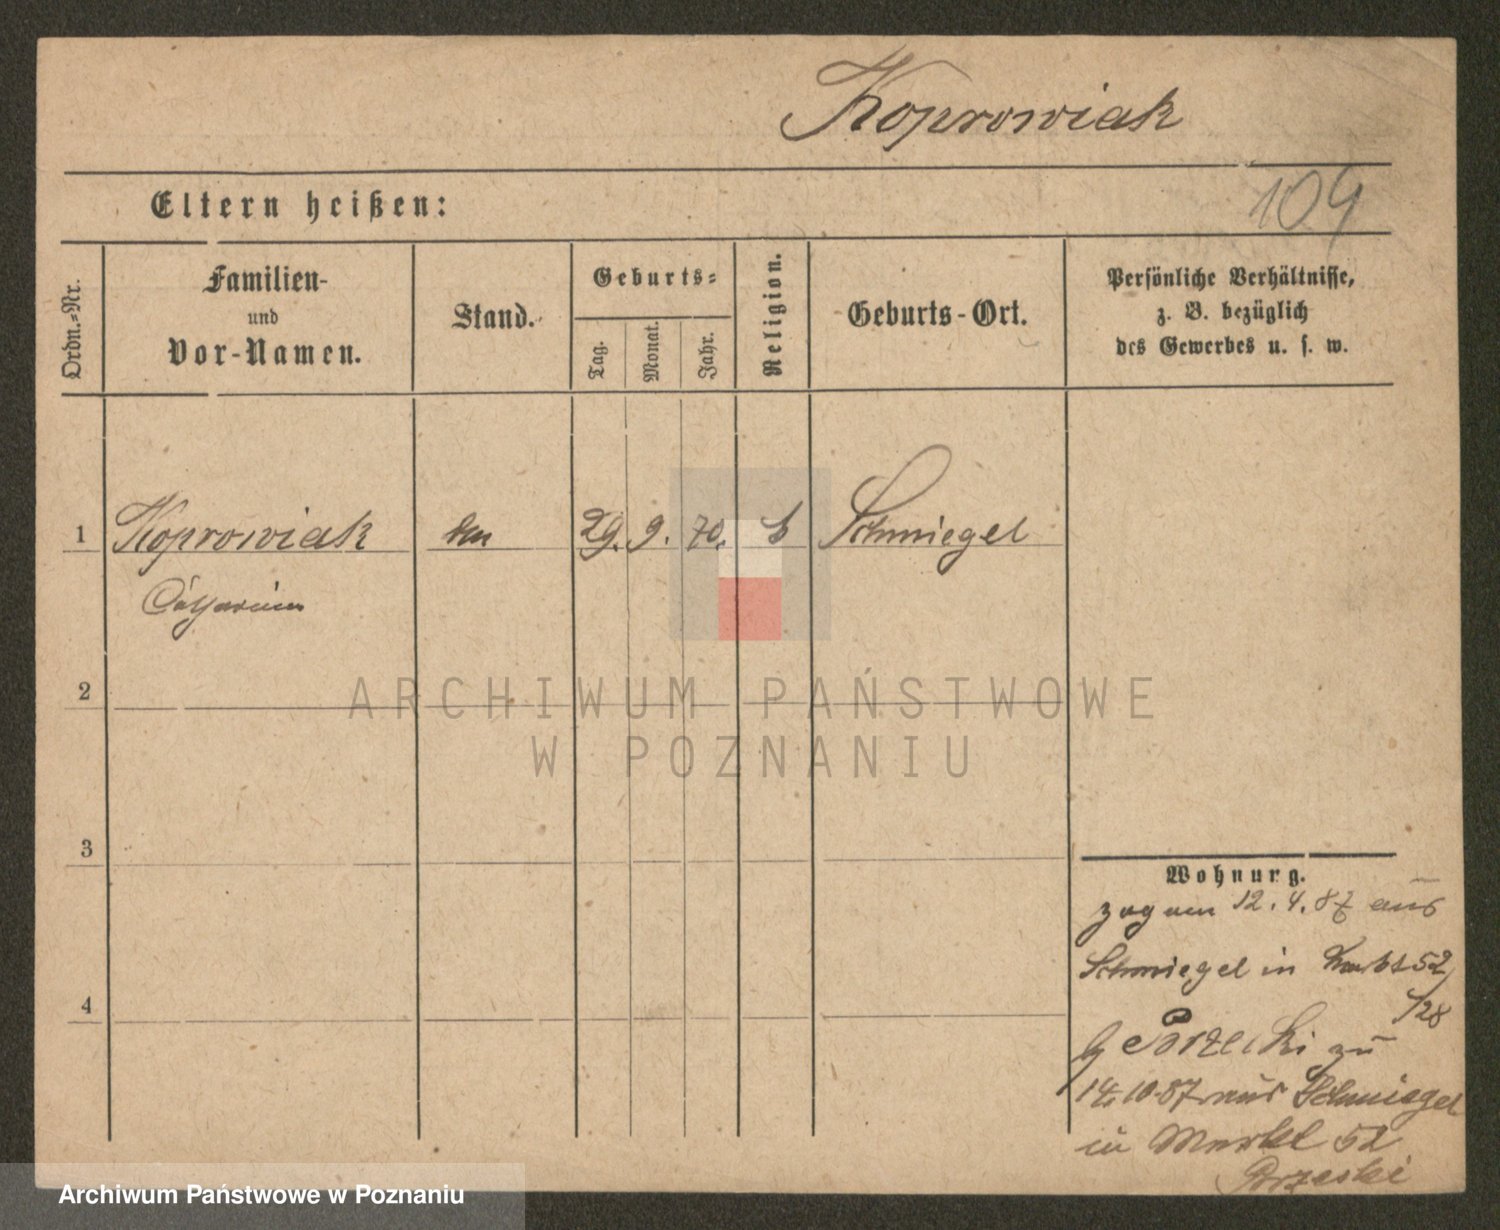 Koprowiak
Eltern heißen:
104
Ordn.-Nr.
Familien-
und
Vor-Namen.
Stand.
Geburts-
Tag.
Monat.
Jahr.
Religion.
Geburts-Ort.
Persönliche Verhältnisse,
z. B. bezüglich
des Gewerbes u. s. w.
1 Koprowiak 29. 9. 70. Schmiegel
Catharina
2
ARCHIWUM PAŃSTWOWE
W POZNANIU
3
Wohnung.
zog am 12. 4. 87 aus
Schmiegel in 52
4
/28
Brzecki zu
14. 10. 87 aus Schmiegel
in Markt 52
Brzeski
Archiwum Państwowe w Poznaniu